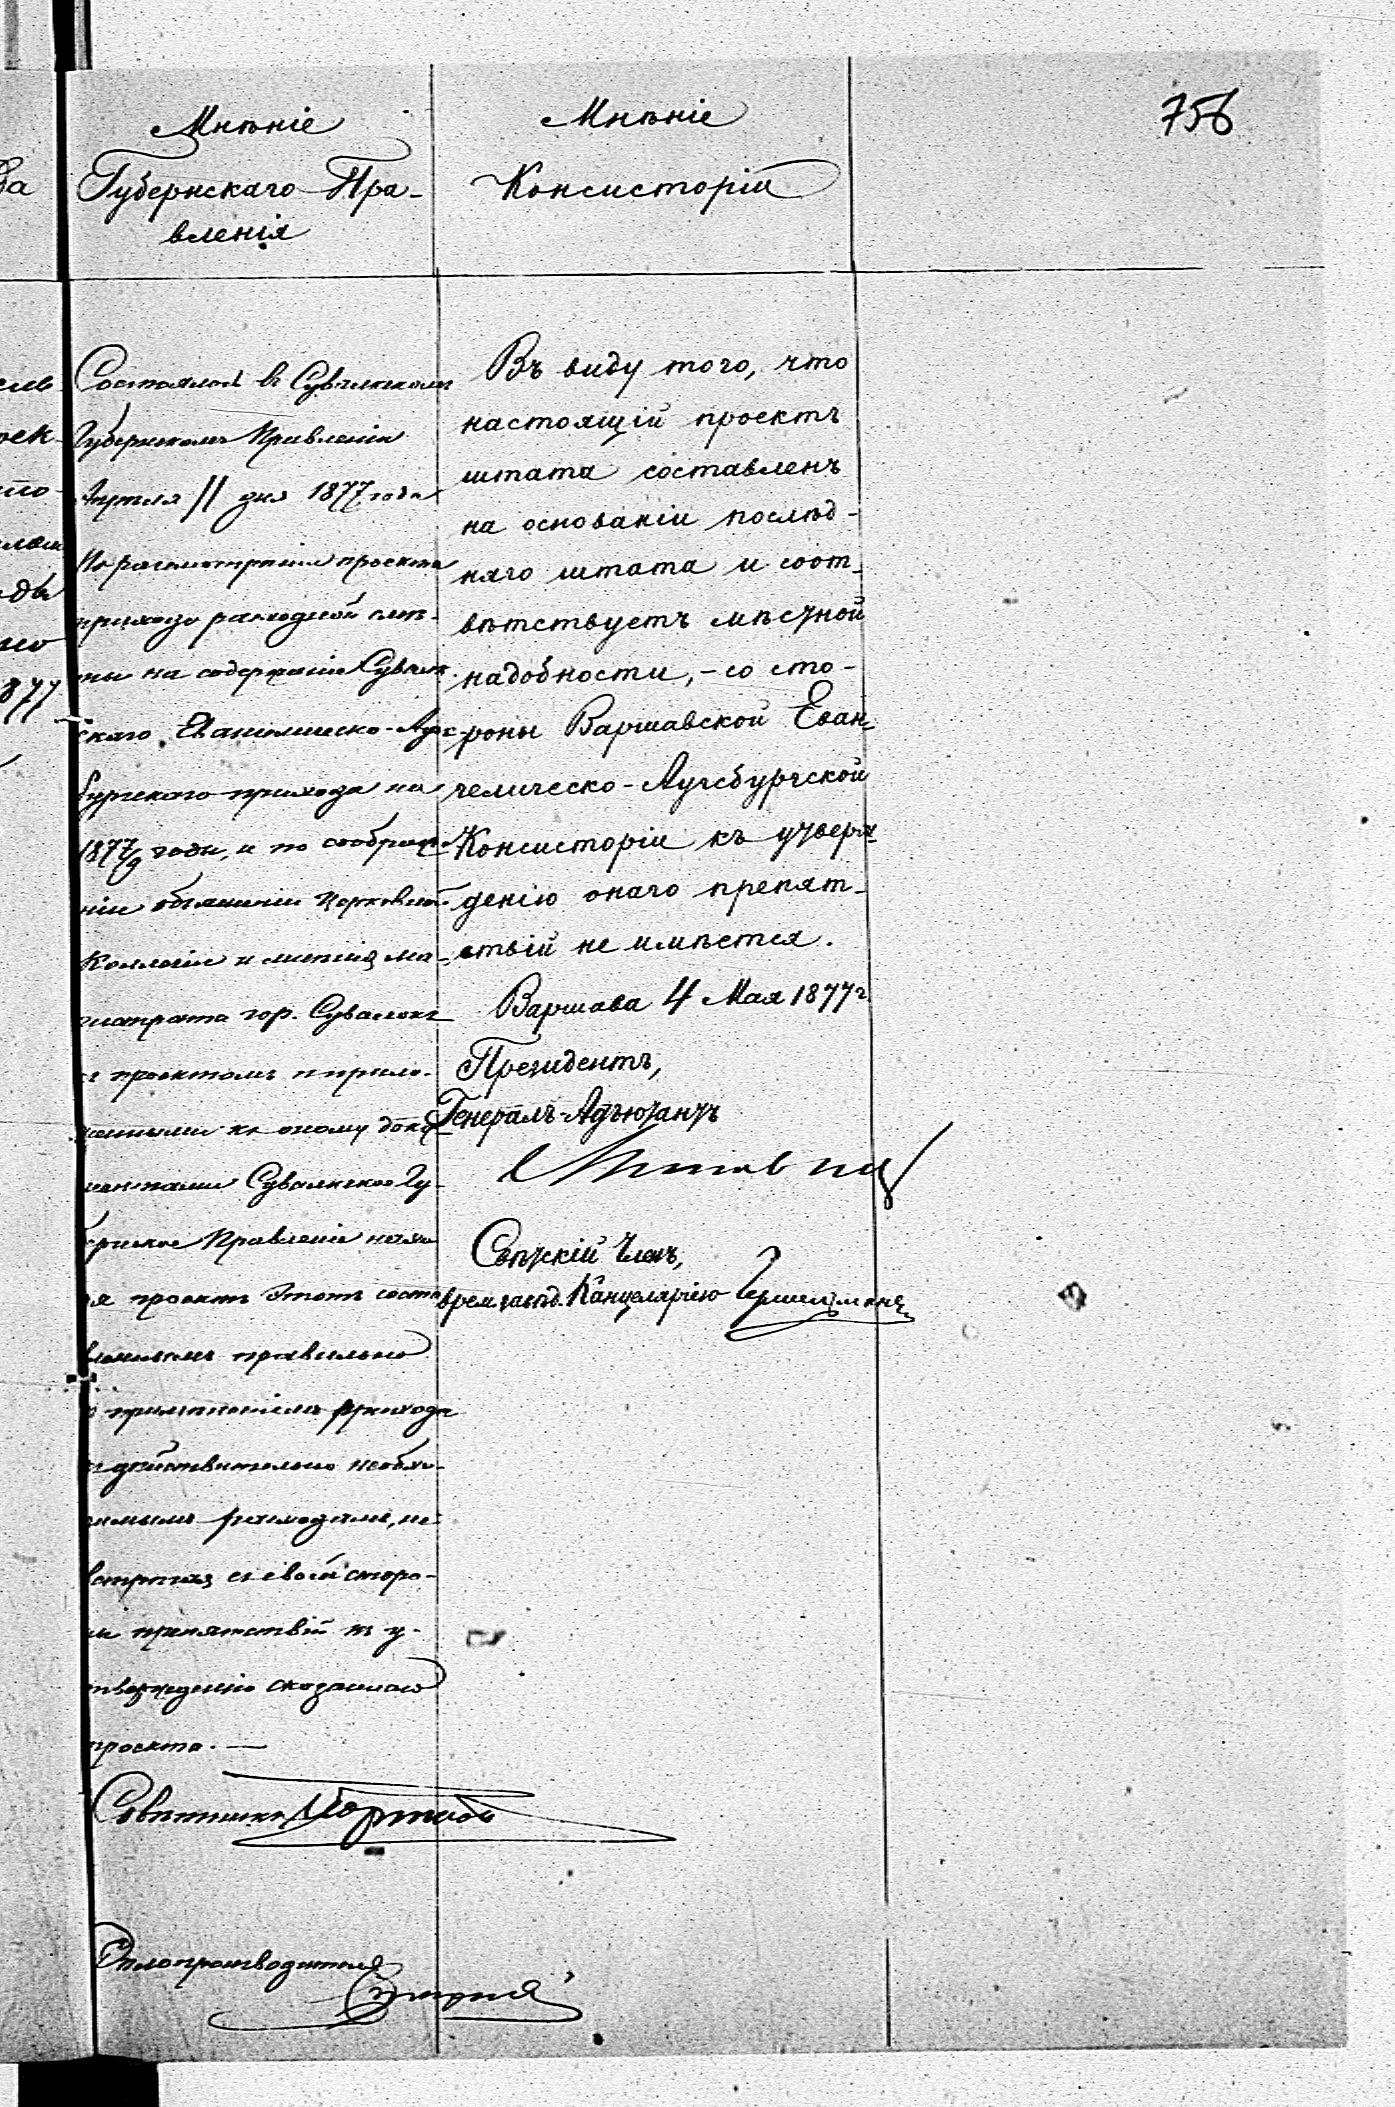 756
Мнѣніе
Губернскаго Пра-
вленія
Состоялось въ Сувалкскомъ
Губернскомъ Правленіи
Апрѣля 11 дня 1877 года
По разсмотрѣніи проекта
приходо расходной смѣ-
ты на содержаніе Сувалк-
скаго Евангелическо-Аугс-
бургскаго прихода на
1877/9 годы, и по соображе-
ніи объясненій Церковной
Коллегіи и мнѣнія Ма-
гистрата гор. Сувалокъ
съ проектомъ и прило-
женными къ оному доку-
ментами Сувалкское Гу-
бернское Правленіе находя
проектъ этотъ соста-
вленнымъ правильно
примѣненіемъ прихода
къ дѣйствительно необхо-
димымъ расходамъ, не
встрѣчая съ своей сторо-
ны препятствій къ у-
твержденію сказаннаго
проекта. —
Совѣтникъ
Дѣлопроизводитель
Мнѣніе
Консисторіи
Въ виду того, что
настоящій проектъ
штата составленъ
на основаніи послѣд-
няго штата и соот-
вѣтствуетъ мѣстной
надобности, - со сто-
роны Варшавской Еван-
гелическо-Аугсбургской
Консисторіи къ утверж-
денію онаго препят-
ствій не имѣется.
Варшава 4 Мая 1877 г.
Президентъ,
Генералъ-Адъютантъ
Свѣтскій Членъ,
врем. завѣд. Канцеляріею
ва
1877